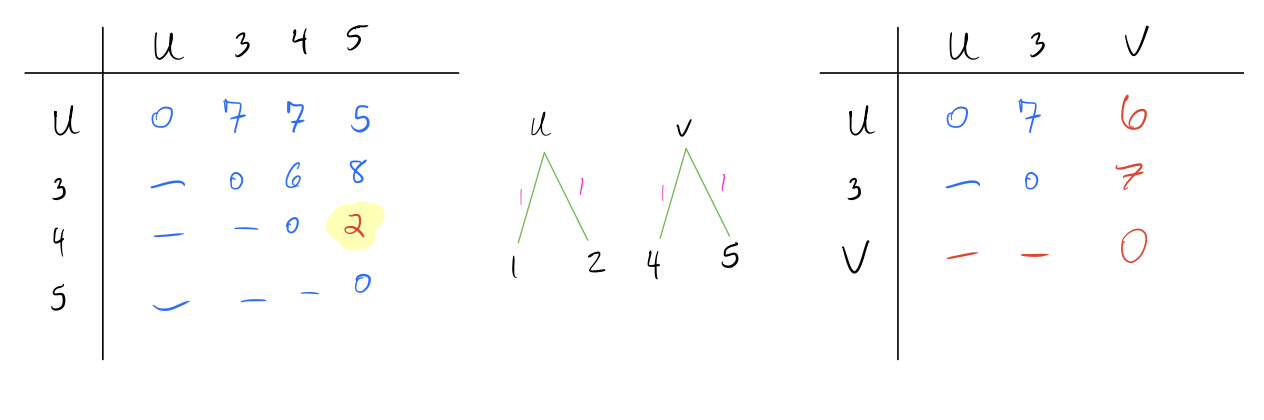 U 3 4 5
U 0 7 7 5
3 — 0 6 8
4 — — 0 2
5 — — — 0
U V
1 1 1 1
1 2 4 5
U 3 V
U 0 7 6
3 — 0 7
V — — 0